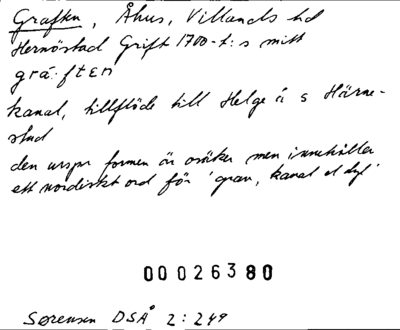 Graften, Åhus, Villands hd
Hernöstad Grift 1700-t:s mitt
grá:ften
kanal, tillflöde till Helge å s Härne-
stad
den urspr formen är osäker men innehåller
ett nordiskt ord för 'grav, kanal el dyl'
00026380
Sørensen DSÅ 2:249